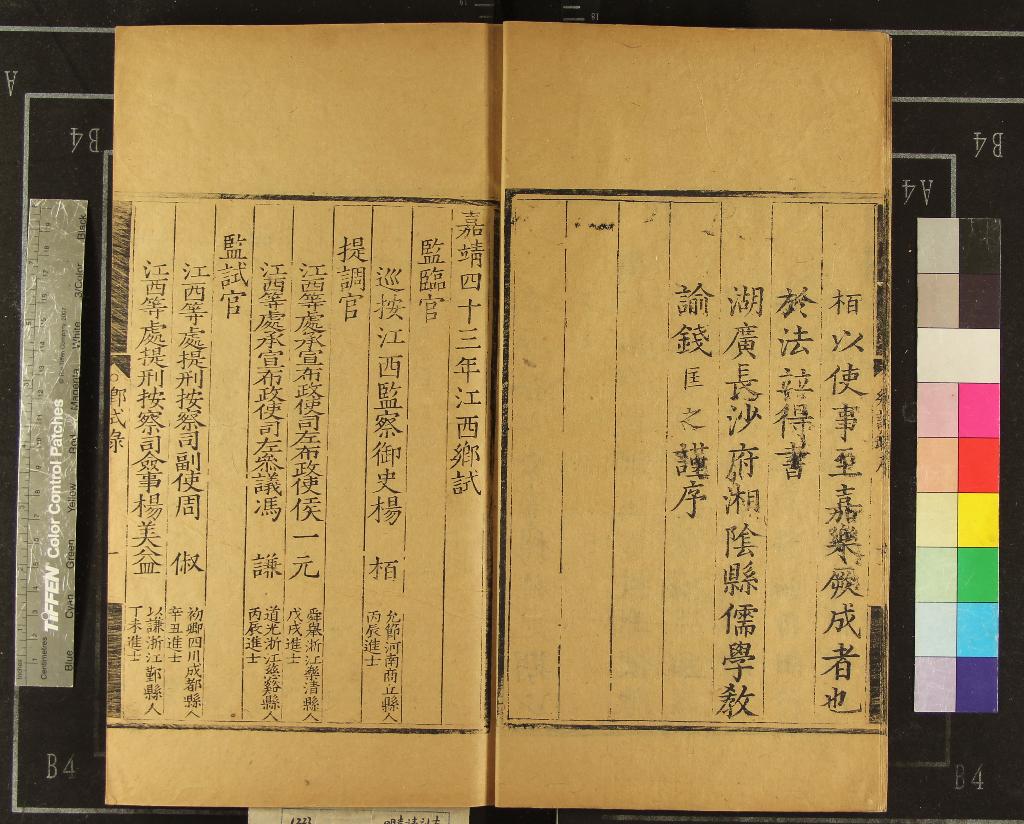 栢以使事至嘉樂厥成者也
於法諱得書
湖廣長沙府湘陰縣儒學教
諭錢匡之謹序
嘉靖四十三年江西鄉試
監臨官
巡按江西監察御史楊 栢 允節河南商丘縣人 丙辰進士
提調官
江西等處承宣布政使司左布政使侯一元 舜舉浙江樂清縣人 戊戌進士
江西等處承宣布政使司左叅議馮 謙 道光浙江慈谿縣人 丙辰進士
監試官
江西等處提刑按察司副使周 俶 初卿四川成都縣人 辛丑進士
江西等處提刑按察司僉事楊美益 以謙浙江鄞縣人 丁未進士
鄉試錄
一
TIFFEN Color Control Patches
Blue Cyan Green Yellow Red Magenta White 3/Color Black
Centimetres
Inches
A
B4
B4
A4
B4
B4